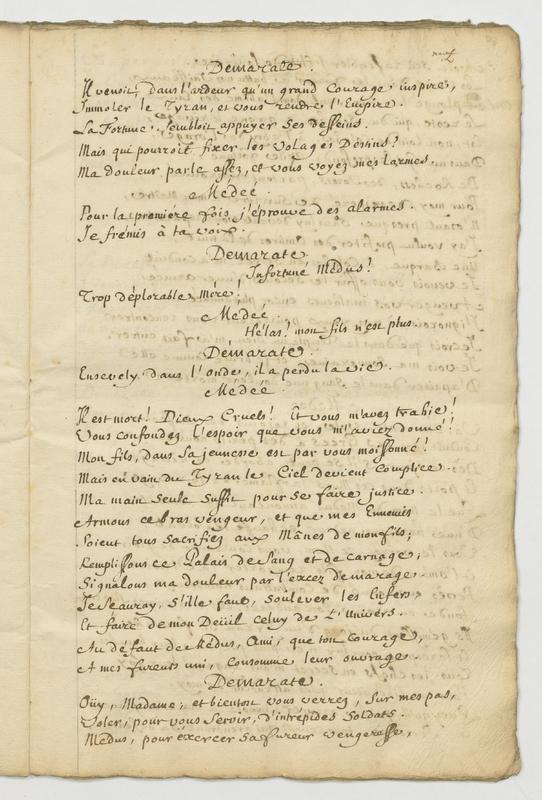 neuf
Démarate.
Il venoit, dans l'ardeur qu'un grand Courage inspire,
Immoler le Tyran, et vous rendre l'Empire.
La Fortune, sembloit appuyer ses desseins.
Mais qui pourroit fixer les volages Destins?
Ma douleur parle assez, et vous voyez mes larmes.
Medeé.
Pour la premiére fois j'éprouve des alarmes.
Je fremis à ta voix.
Demarate.
Infortuné Médus!
Trop déplorable Mére!
Medeé.
Hélas! mon fils n'est plus.
Démarate.
Ensevely dans l'onde, il a perdu la vie.
Médeé.
Il est mort! Dieux Cruels! Et vous m'avez trahie!
Vous confondez l'espoir que vous m'aviez donné!
Mon fils, dans sa jeunesse est par vous moissonné!
Mais en vain du Tyran le Ciel devient complice.
Ma main seule suffit pour se faire justice.
Armons ce bras vengeur, et que mes Ennemis
Soient tous sacrifiez aux Mânes de mon fils;
Remplissons ce Palais de Sang et de Carnage;
Signalons ma douleur par l'excez de ma rage.
Je sauray, s'ille faut, soulever les Enfers
Et faire de mon Deüil celuy de L'Univers.
Au défaut de Médus, Ami, que ton Courage,
A mes fureurs uni, Consomme leur ouvrage.
Demarate.
Oüy, Madame, et bientost vous verrez, sur mes pas,
Voler, pour vous servir, d'intrépides Soldats.
Médus, pour éxercer sa fureur vengeresse,